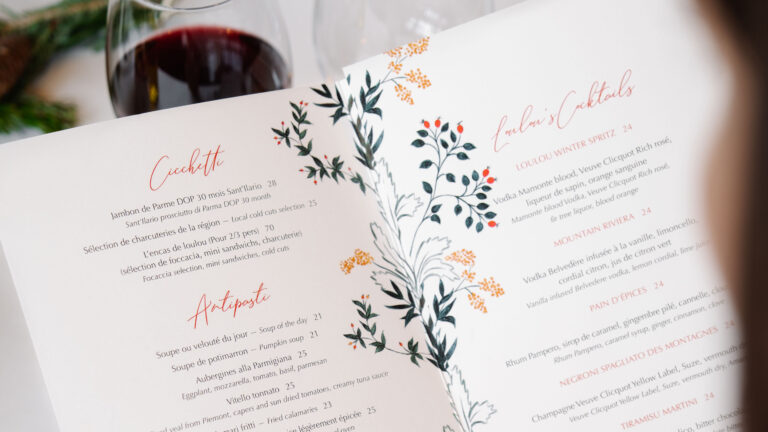 Cicchetti
Jambon de Parme DOP 30 mois Sant'Ilario 28
Sant'Ilario prosciutto di Parma DOP 30 month
Sélection de charcuteries de la région — Local cold cuts selection 25
L'encas de loulou (Pour 2/3 pers) 70
(sélection de foccacia, mini sandwichs, charcuterie)
Focaccia selection, mini sandwiches, cold cuts
Antipasti
Soupe ou velouté du jour — Soup of the day 21
Soupe de potimarron — Pumpkin soup 21
Aubergines alla Parmigiana 25
Eggplant, mozzarella, tomato, basil, parmesan
Vitello tonnato 25
veal from Piemont, capers and sun dried tomatoes, creamy tuna sauce
fritti — Fried calamaries 23
légèrement épicée 25
Loulou's Cocktails
LOULOU WINTER SPRITZ 24
Vodka Mamonte blood, Veuve Clicquot Rich rosé,
liqueur de sapin, orange sanguine
Mamonte blood Vodka, Veuve Clicquot Rich rosé,
fir tree liquor, blood orange
MOUNTAIN RIVIERA 24
Vodka Belvedère infusée à la vanille, limoncello,
cordial citron, jus de citron vert
Vanilla infused Belvedere vodka, lemon cordial, lime
PAIN D'ÉPICES 24
Rhum Pampero, sirop de caramel, gingembre pilé, cannelle,
Rhum Pampero, caramel syrup, ginger, cinnamon, clove
NEGRONI SPAGLIATO DES MONTAGNES 24
Champagne Veuve Clicquot Yellow Label, Suze, vermouth
Veuve Clicquot Yellow Label, Suze, vermouth dry,
TIRAMISU MARTINI 24
bitter